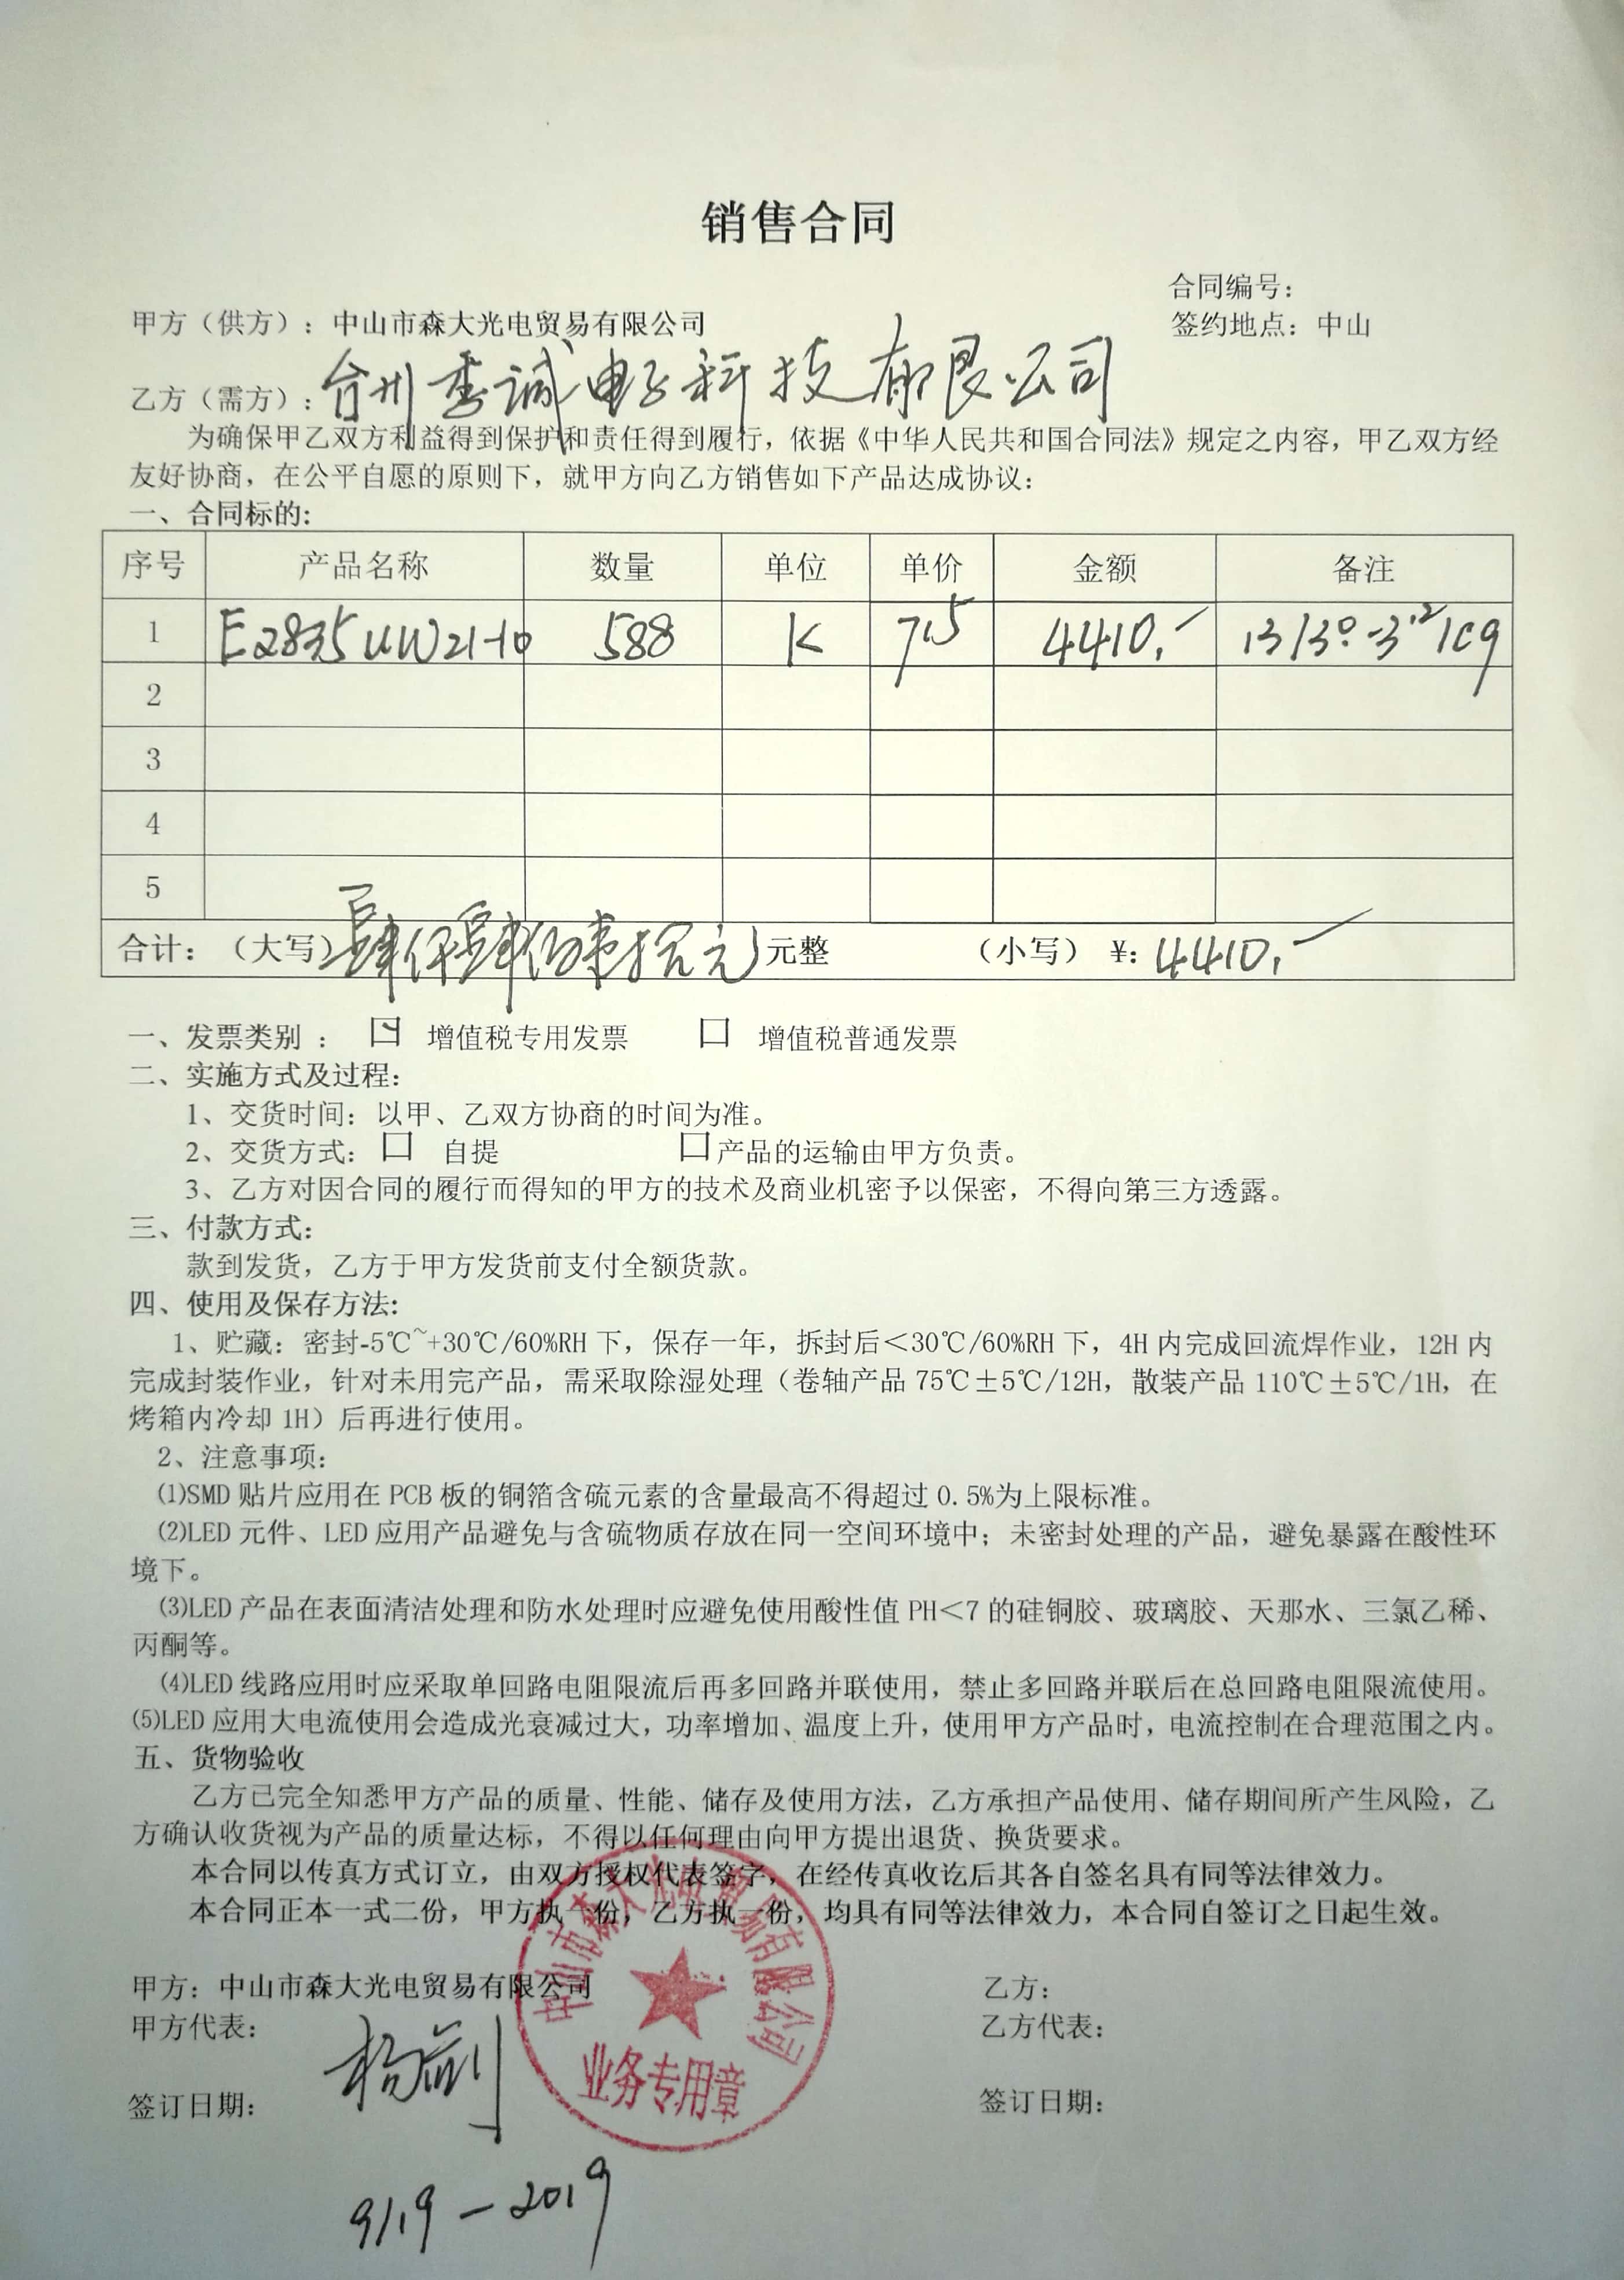 销售合同
合同编号：
甲方（供方）：中山市森大光电贸易有限公司
签约地点：中山
乙方（需方）：台州季诚电子科技有限公司
为确保甲乙双方利益得到保护和责任得到履行，依据《中华人民共和国合同法》规定之内容，甲乙双方经
友好协商，在公平自愿的原则下，就甲方向乙方销售如下产品达成协议：
一、合同标的：
序号 产品名称 数量 单位 单价 金额 备注
1 E2835UW21-10 588 K 7.5 4410.-
2
3
4
5
合计：（大写）肆仟肆佰壹拾元元整 （小写）¥：4410.-
一、发票类别 ： 增值税专用发票 □ 增值税普通发票
二、实施方式及过程：
1、交货时间：以甲、乙双方协商的时间为准。
2、交货方式：□ 自提 □产品的运输由甲方负责。
3、乙方对因合同的履行而得知的甲方的技术及商业机密予以保密，不得向第三方透露。
三、付款方式：
款到发货，乙方于甲方发货前支付全额货款。
四、使用及保存方法：
1、贮藏：密封-5℃~+30℃/60%RH 下，保存一年，拆封后＜30℃/60%RH 下，4H 内完成回流焊作业，12H 内
完成封装作业，针对未用完产品，需采取除湿处理（卷轴产品 75℃±5℃/12H，散装产品 110℃±5℃/1H，在
烤箱内冷却 1H）后再进行使用。
2、注意事项：
⑴SMD 贴片应用在 PCB 板的铜箔含硫元素的含量最高不得超过 0.5%为上限标准。
⑵LED 元件、LED 应用产品避免与含硫物质存放在同一空间环境中；未密封处理的产品，避免暴露在酸性环
境下。
⑶LED 产品在表面清洁处理和防水处理时应避免使用酸性值 PH＜7 的硅铜胶、玻璃胶、天那水、三氯乙稀、
丙酮等。
⑷LED 线路应用时应采取单回路电阻限流后再多回路并联使用，禁止多回路并联后在总回路电阻限流使用。
⑸LED 应用大电流使用会造成光衰减过大，功率增加、温度上升，使用甲方产品时，电流控制在合理范围之内。
五、货物验收
乙方已完全知悉甲方产品的质量、性能、储存及使用方法，乙方承担产品使用、储存期间所产生风险，乙
方确认收货视为产品的质量达标，不得以任何理由向甲方提出退货、换货要求。
本合同以传真方式订立，由双方授权代表签字，在经传真收讫后其各自签名具有同等法律效力。
本合同正本一式二份，甲方执一份，乙方执一份，均具有同等法律效力，本合同自签订之日起生效。
甲方：中山市森大光电贸易有限公司
乙方：
甲方代表：
乙方代表：
签订日期：
签订日期：
中山市森大光电贸易有限公司
业务专用章
9/19-2019